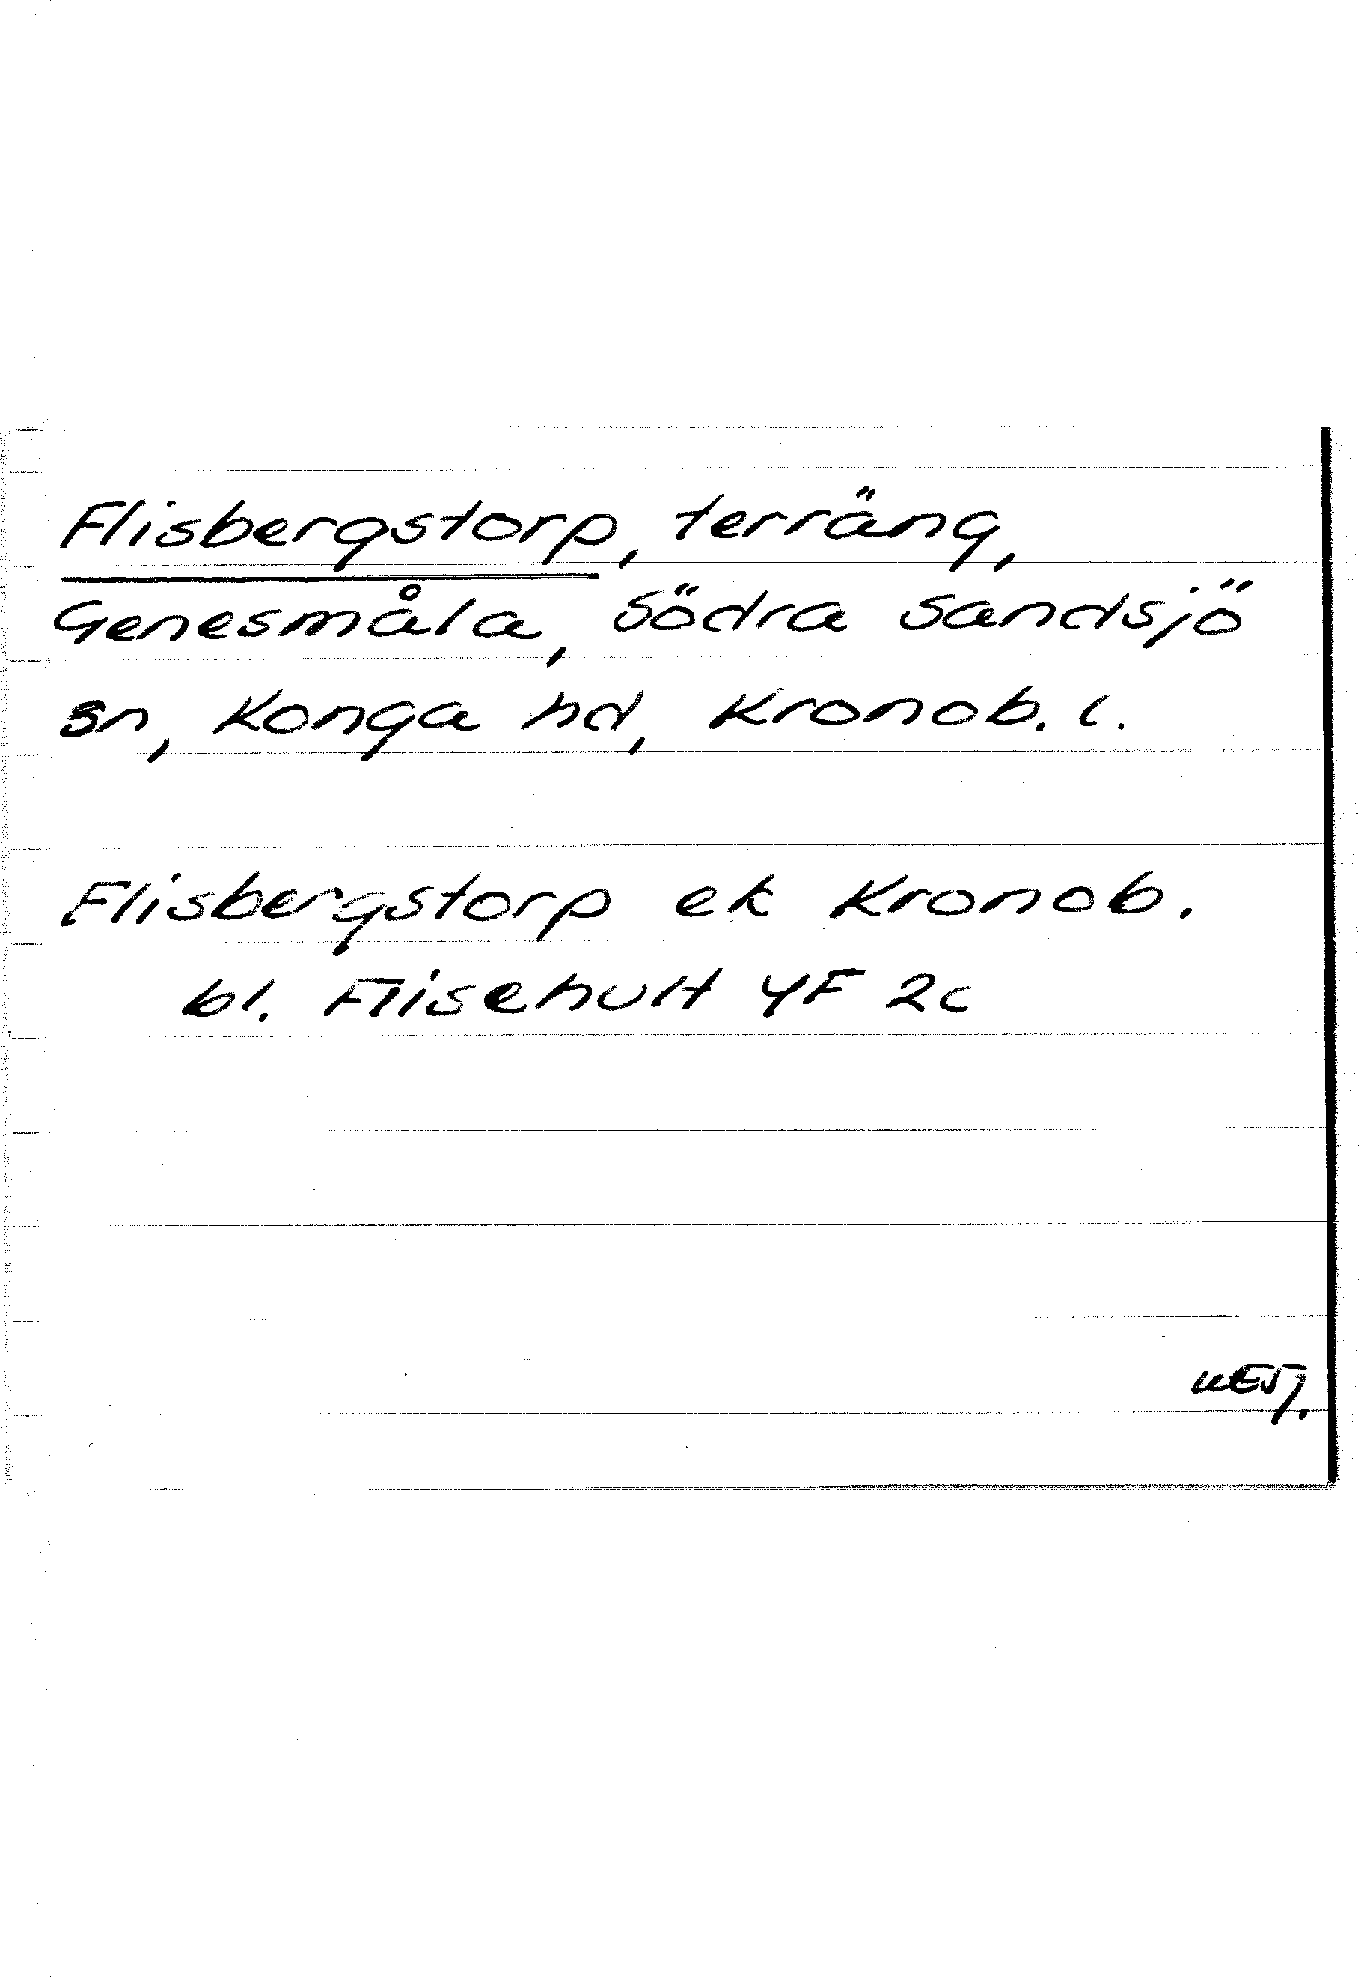 Flisbergstorp, terräng,
Genesmåla, Södra Sandsjö
sn, Konga hd, Kronob. l.
Flisbergstorp ek Kronob.
bl. Flisehult 4F 2c